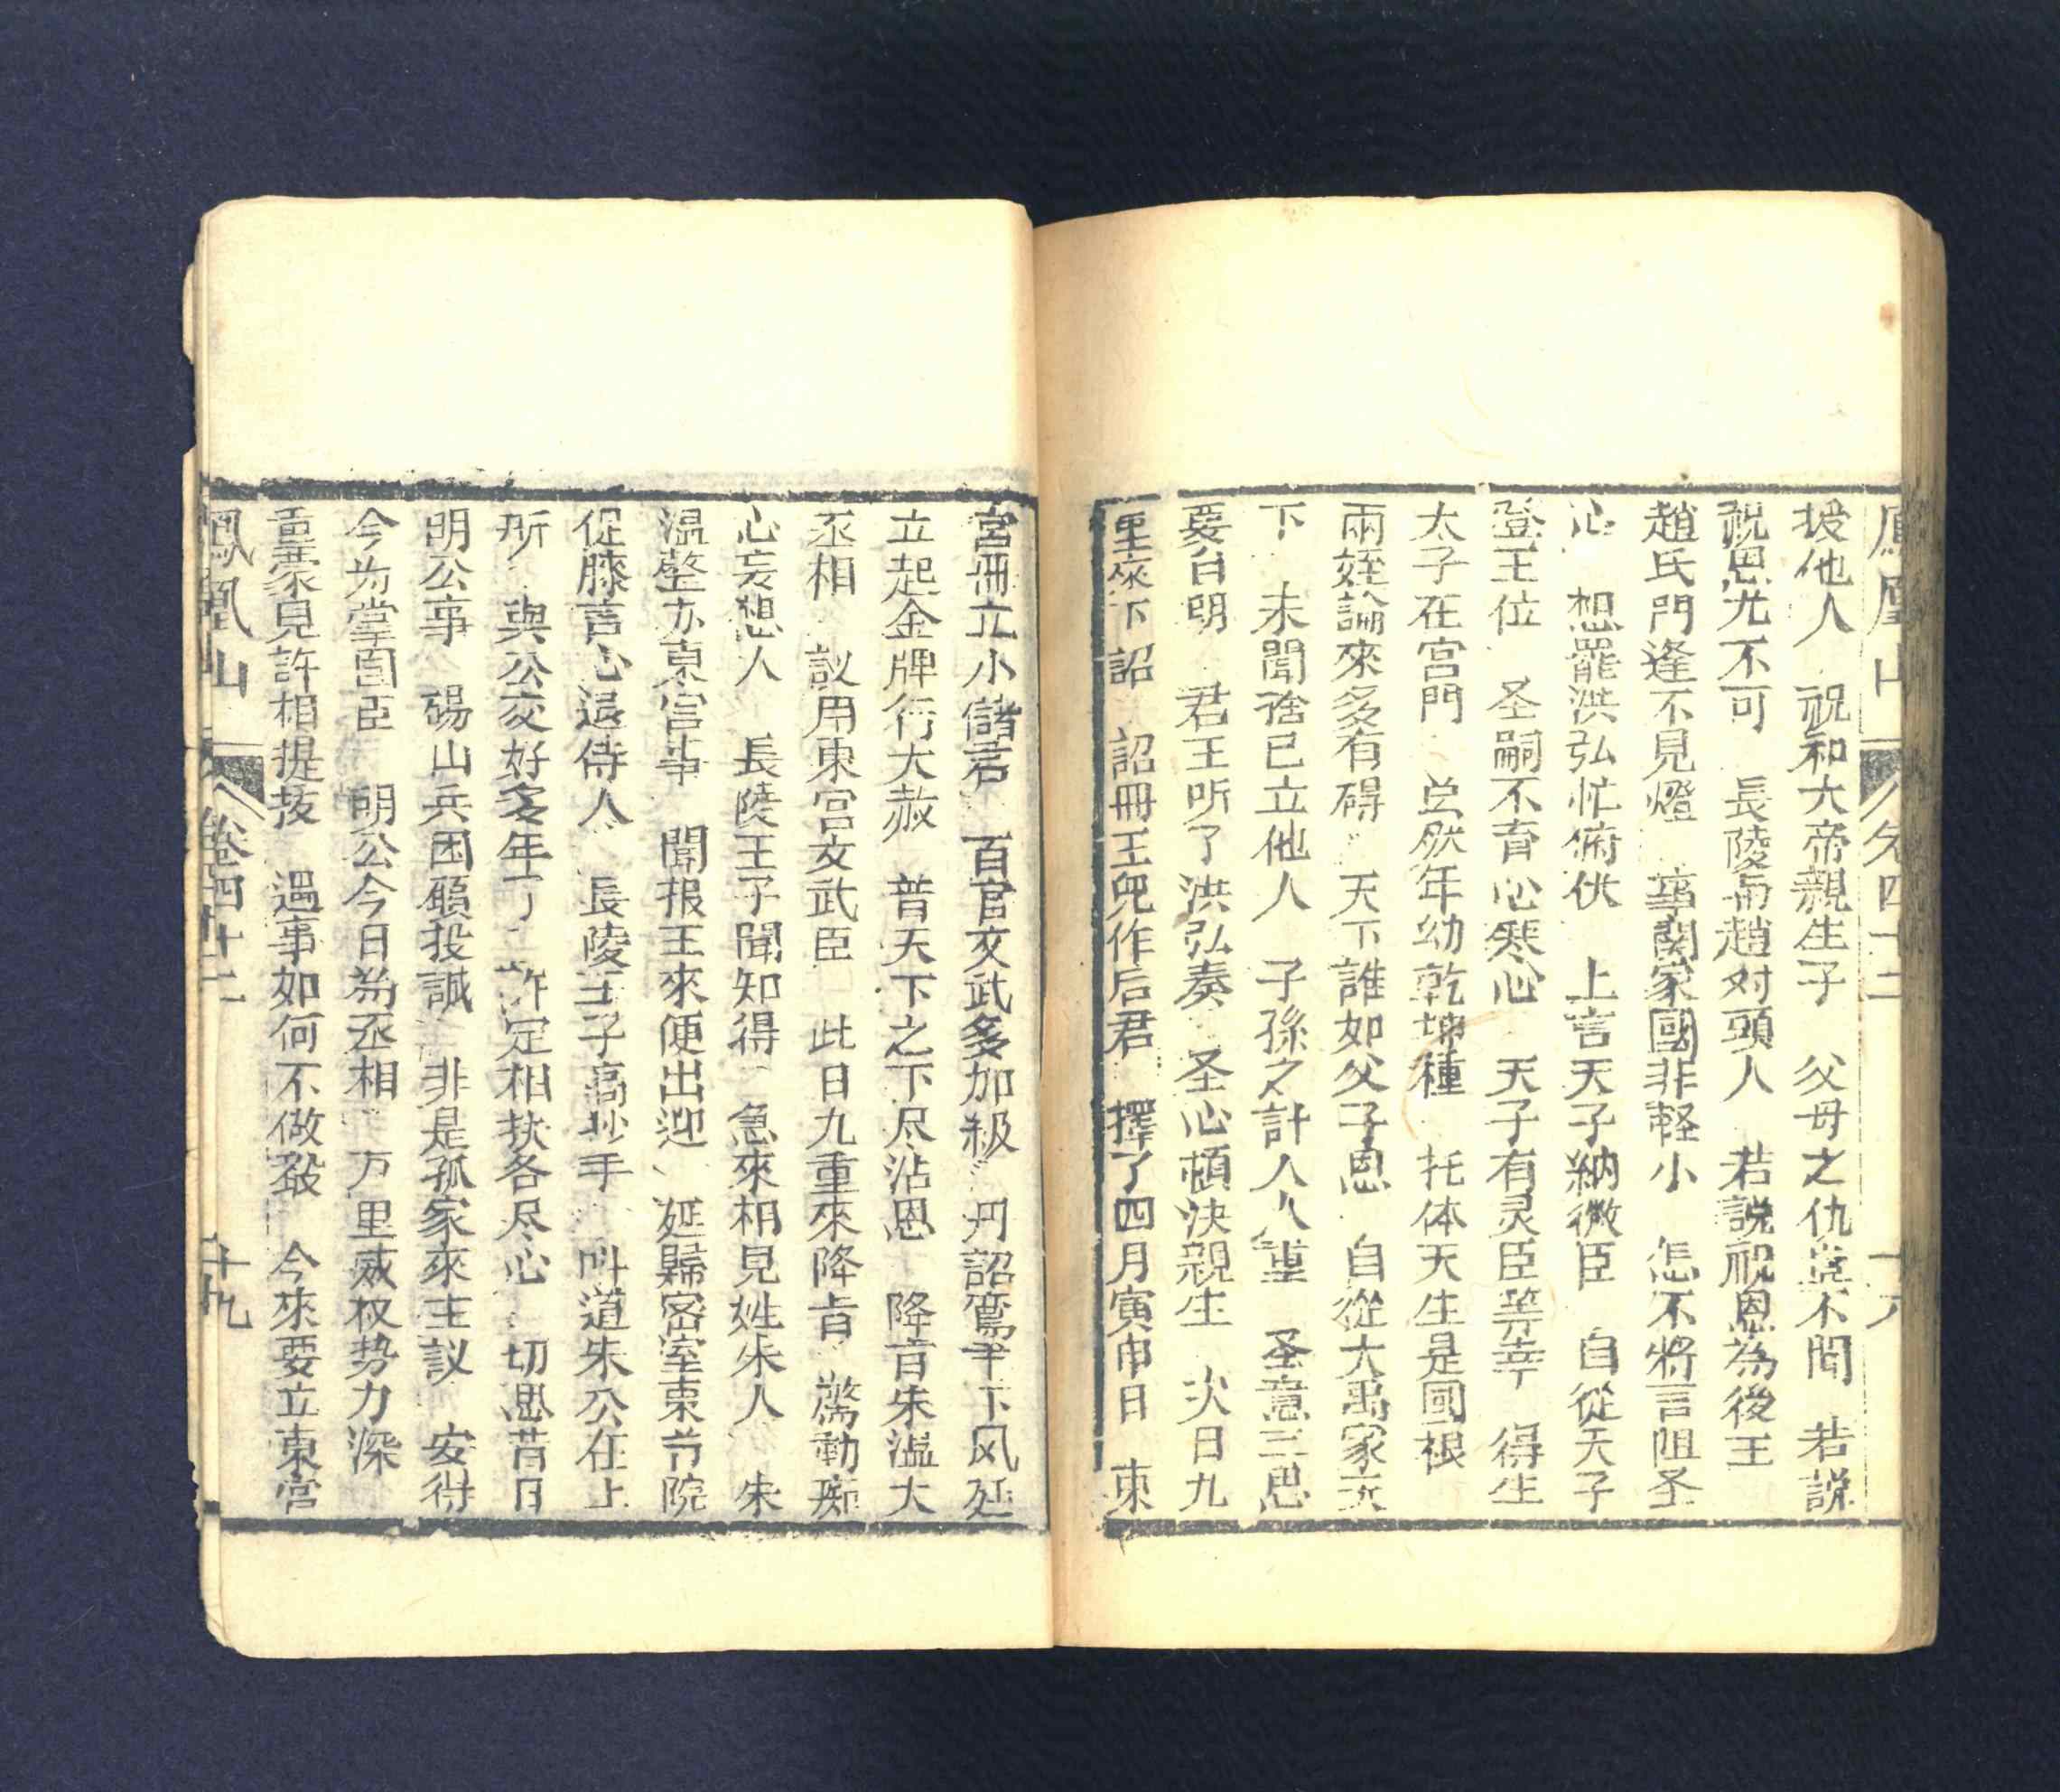 鳳凰山 卷四十二 十八
授他人 祝和大帝親生子 父母之仇豈不聞 若説
祝恩尤不可 長陵而趙对頭人 若説祝恩為後王
趙氏門逢不見燈 事関家國非軽小 怎不將言阻圣
心 想罷洪弘忙俯伏 上言天子納微臣 自從天子
登王位 圣嗣不育心寒心 天子有灵臣等幸 得生
太子在宮門 虽然年幼乾坤種 托体天生是國根
兩姪論來多有碍 天下誰如父子恩 自從大禹家天
下 未聞捨已立他人 子孫之計人人重 圣意三思
要台明 君王听了洪弘奏 圣心頓決親生 次日九
重來下詔 詔冊王兜作后君 擇了四月寅申日 東
宮冊立小儲君 百官文武多加級 丹詔鸞半下风延
立起金牌行大赦 普天下之下尽沾恩 降旨朱温大
丞相 議用東宮文武臣 此日九重來降旨 驚動痴
心妄想人 長陵王子聞知得 急來相見姓朱人 朱
温整办東宮事 聞报王來便出迎 延歸密室東芇院
促膝言心退侍人 長陵王子高抄手 叫道朱公在上
所 與公交好多年了 許定相扶各尽心 切思昔日
明公事 碭山兵困願投誠 非是孤家來主议 安得
今为掌国臣 明公今日為丞相 万里威权势力深
重蒙見許相提抜 過事如何不做声 今來要立東宮
鳳凰山 卷四十二 十九